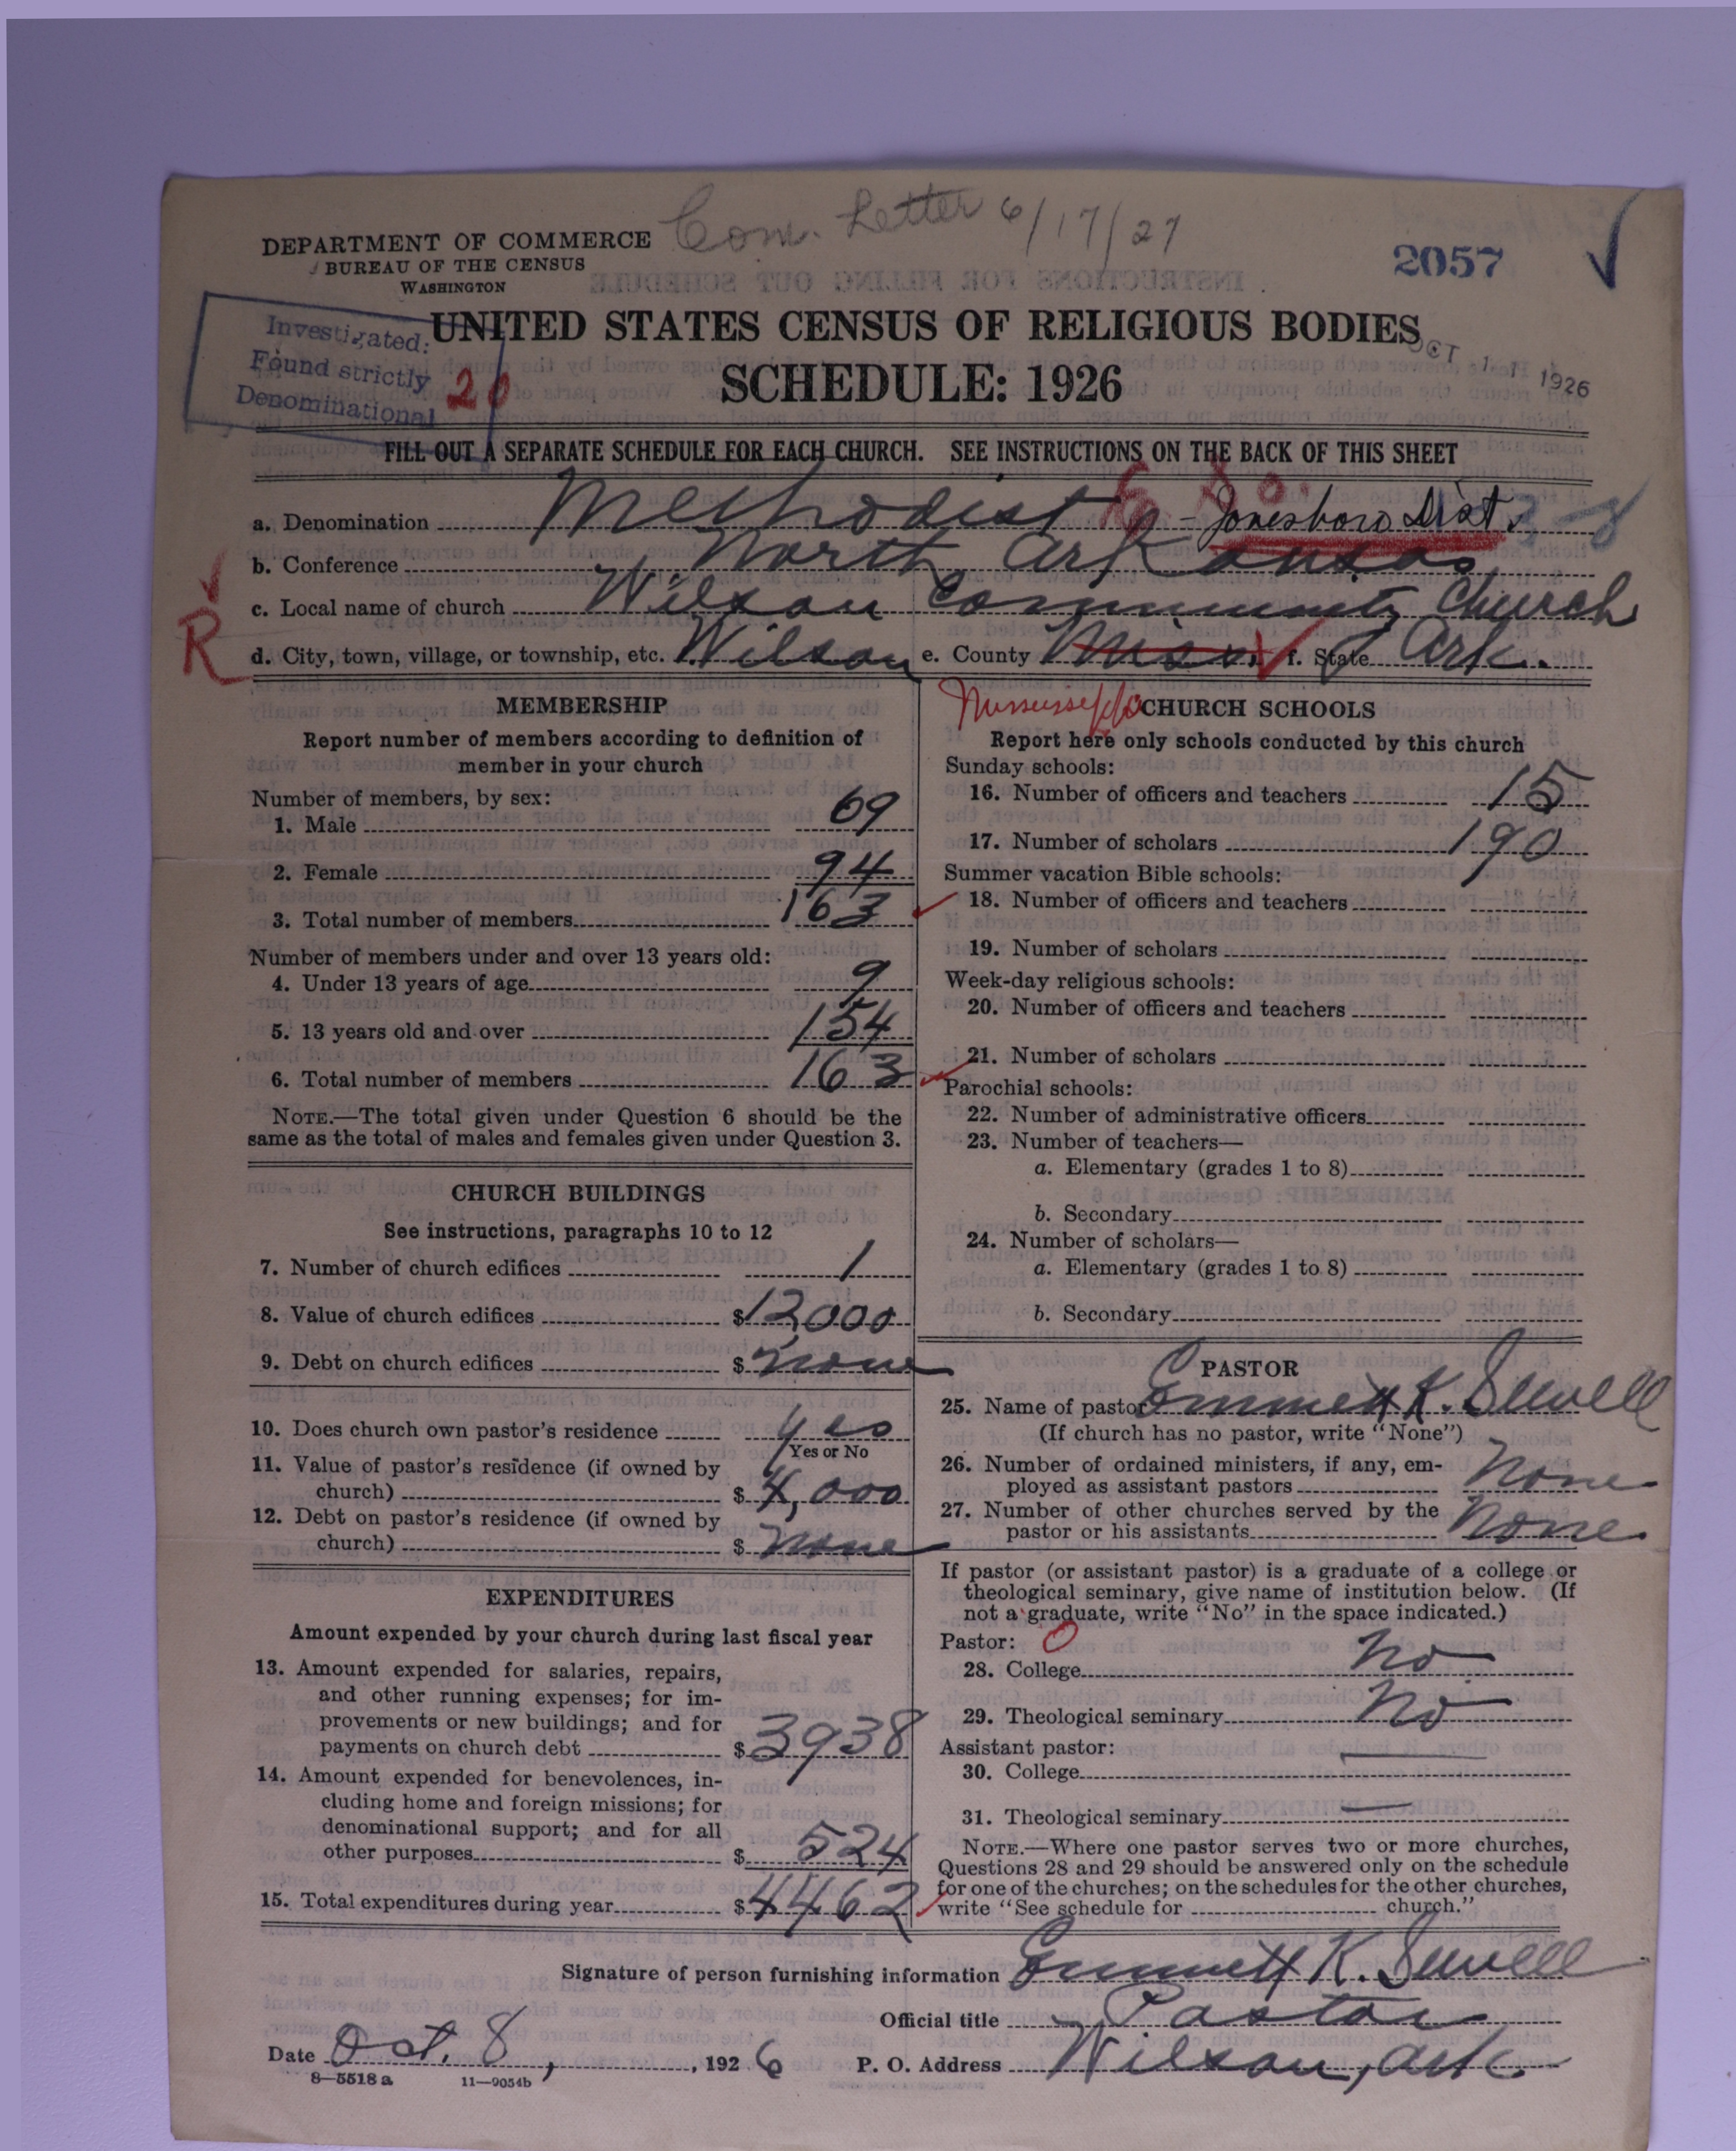 Com. Letter 6/17/27
DEPARTMENT OF COMMERCE
BUREAU OF THE CENSUS
WASHINGTON
2057
Investigated:
Found strictly
Denominational
20
UNITED STATES CENSUS OF RELIGIOUS BODIES
SCHEDULE: 1926
OCT 11 1926
FILL OUT A SEPARATE SCHEDULE FOR EACH CHURCH. SEE INSTRUCTIONS ON THE BACK OF THIS SHEET
a. Denomination Methodist E So. - Jonesboro Dist.
b. Conference North Arkansas
c. Local name of church Wilson Community Church
R
d. City, town, village, or township, etc. Wilson e. County Miss. f. State Ark.
Mississippi
MEMBERSHIP
Report number of members according to definition of
member in your church
Number of members, by sex:
1. Male 69
2. Female 94
3. Total number of members 163
Number of members under and over 13 years old:
4. Under 13 years of age 9
5. 13 years old and over 154
6. Total number of members 163
NOTE.—The total given under Question 6 should be the
same as the total of males and females given under Question 3.
CHURCH BUILDINGS
See instructions, paragraphs 10 to 12
7. Number of church edifices 1
8. Value of church edifices $12,000
9. Debt on church edifices $ none
10. Does church own pastor's residence yes
Yes or No
11. Value of pastor's residence (if owned by
church) $ 4,000
12. Debt on pastor's residence (if owned by
church) $ none
EXPENDITURES
Amount expended by your church during last fiscal year
13. Amount expended for salaries, repairs,
and other running expenses; for im-
provements or new buildings; and for
payments on church debt $3938
14. Amount expended for benevolences, in-
cluding home and foreign missions; for
denominational support; and for all
other purposes $ 524
15. Total expenditures during year $4462
CHURCH SCHOOLS
Report here only schools conducted by this church
Sunday schools:
16. Number of officers and teachers 15
17. Number of scholars 190
Summer vacation Bible schools:
18. Number of officers and teachers
19. Number of scholars
Week-day religious schools:
20. Number of officers and teachers
21. Number of scholars
Parochial schools:
22. Number of administrative officers
23. Number of teachers—
a. Elementary (grades 1 to 8)
b. Secondary
24. Number of scholars—
a. Elementary (grades 1 to 8)
b. Secondary
PASTOR
25. Name of pastor Emmett K. Sewell
(If church has no pastor, write "None")
26. Number of ordained ministers, if any, em-
ployed as assistant pastors None
27. Number of other churches served by the
pastor or his assistants None
If pastor (or assistant pastor) is a graduate of a college or
theological seminary, give name of institution below. (If
not a graduate, write "No" in the space indicated.)
Pastor: O
28. College No
29. Theological seminary No
Assistant pastor:
30. College —
31. Theological seminary —
NOTE.—Where one pastor serves two or more churches,
Questions 28 and 29 should be answered only on the schedule
for one of the churches; on the schedules for the other churches,
write "See schedule for church."
Signature of person furnishing information Emmett K. Sewell
Official title Pastor
Date Oct. 8, 1926 P. O. Address Wilson, Ark.
8—5518 a 11—9054b